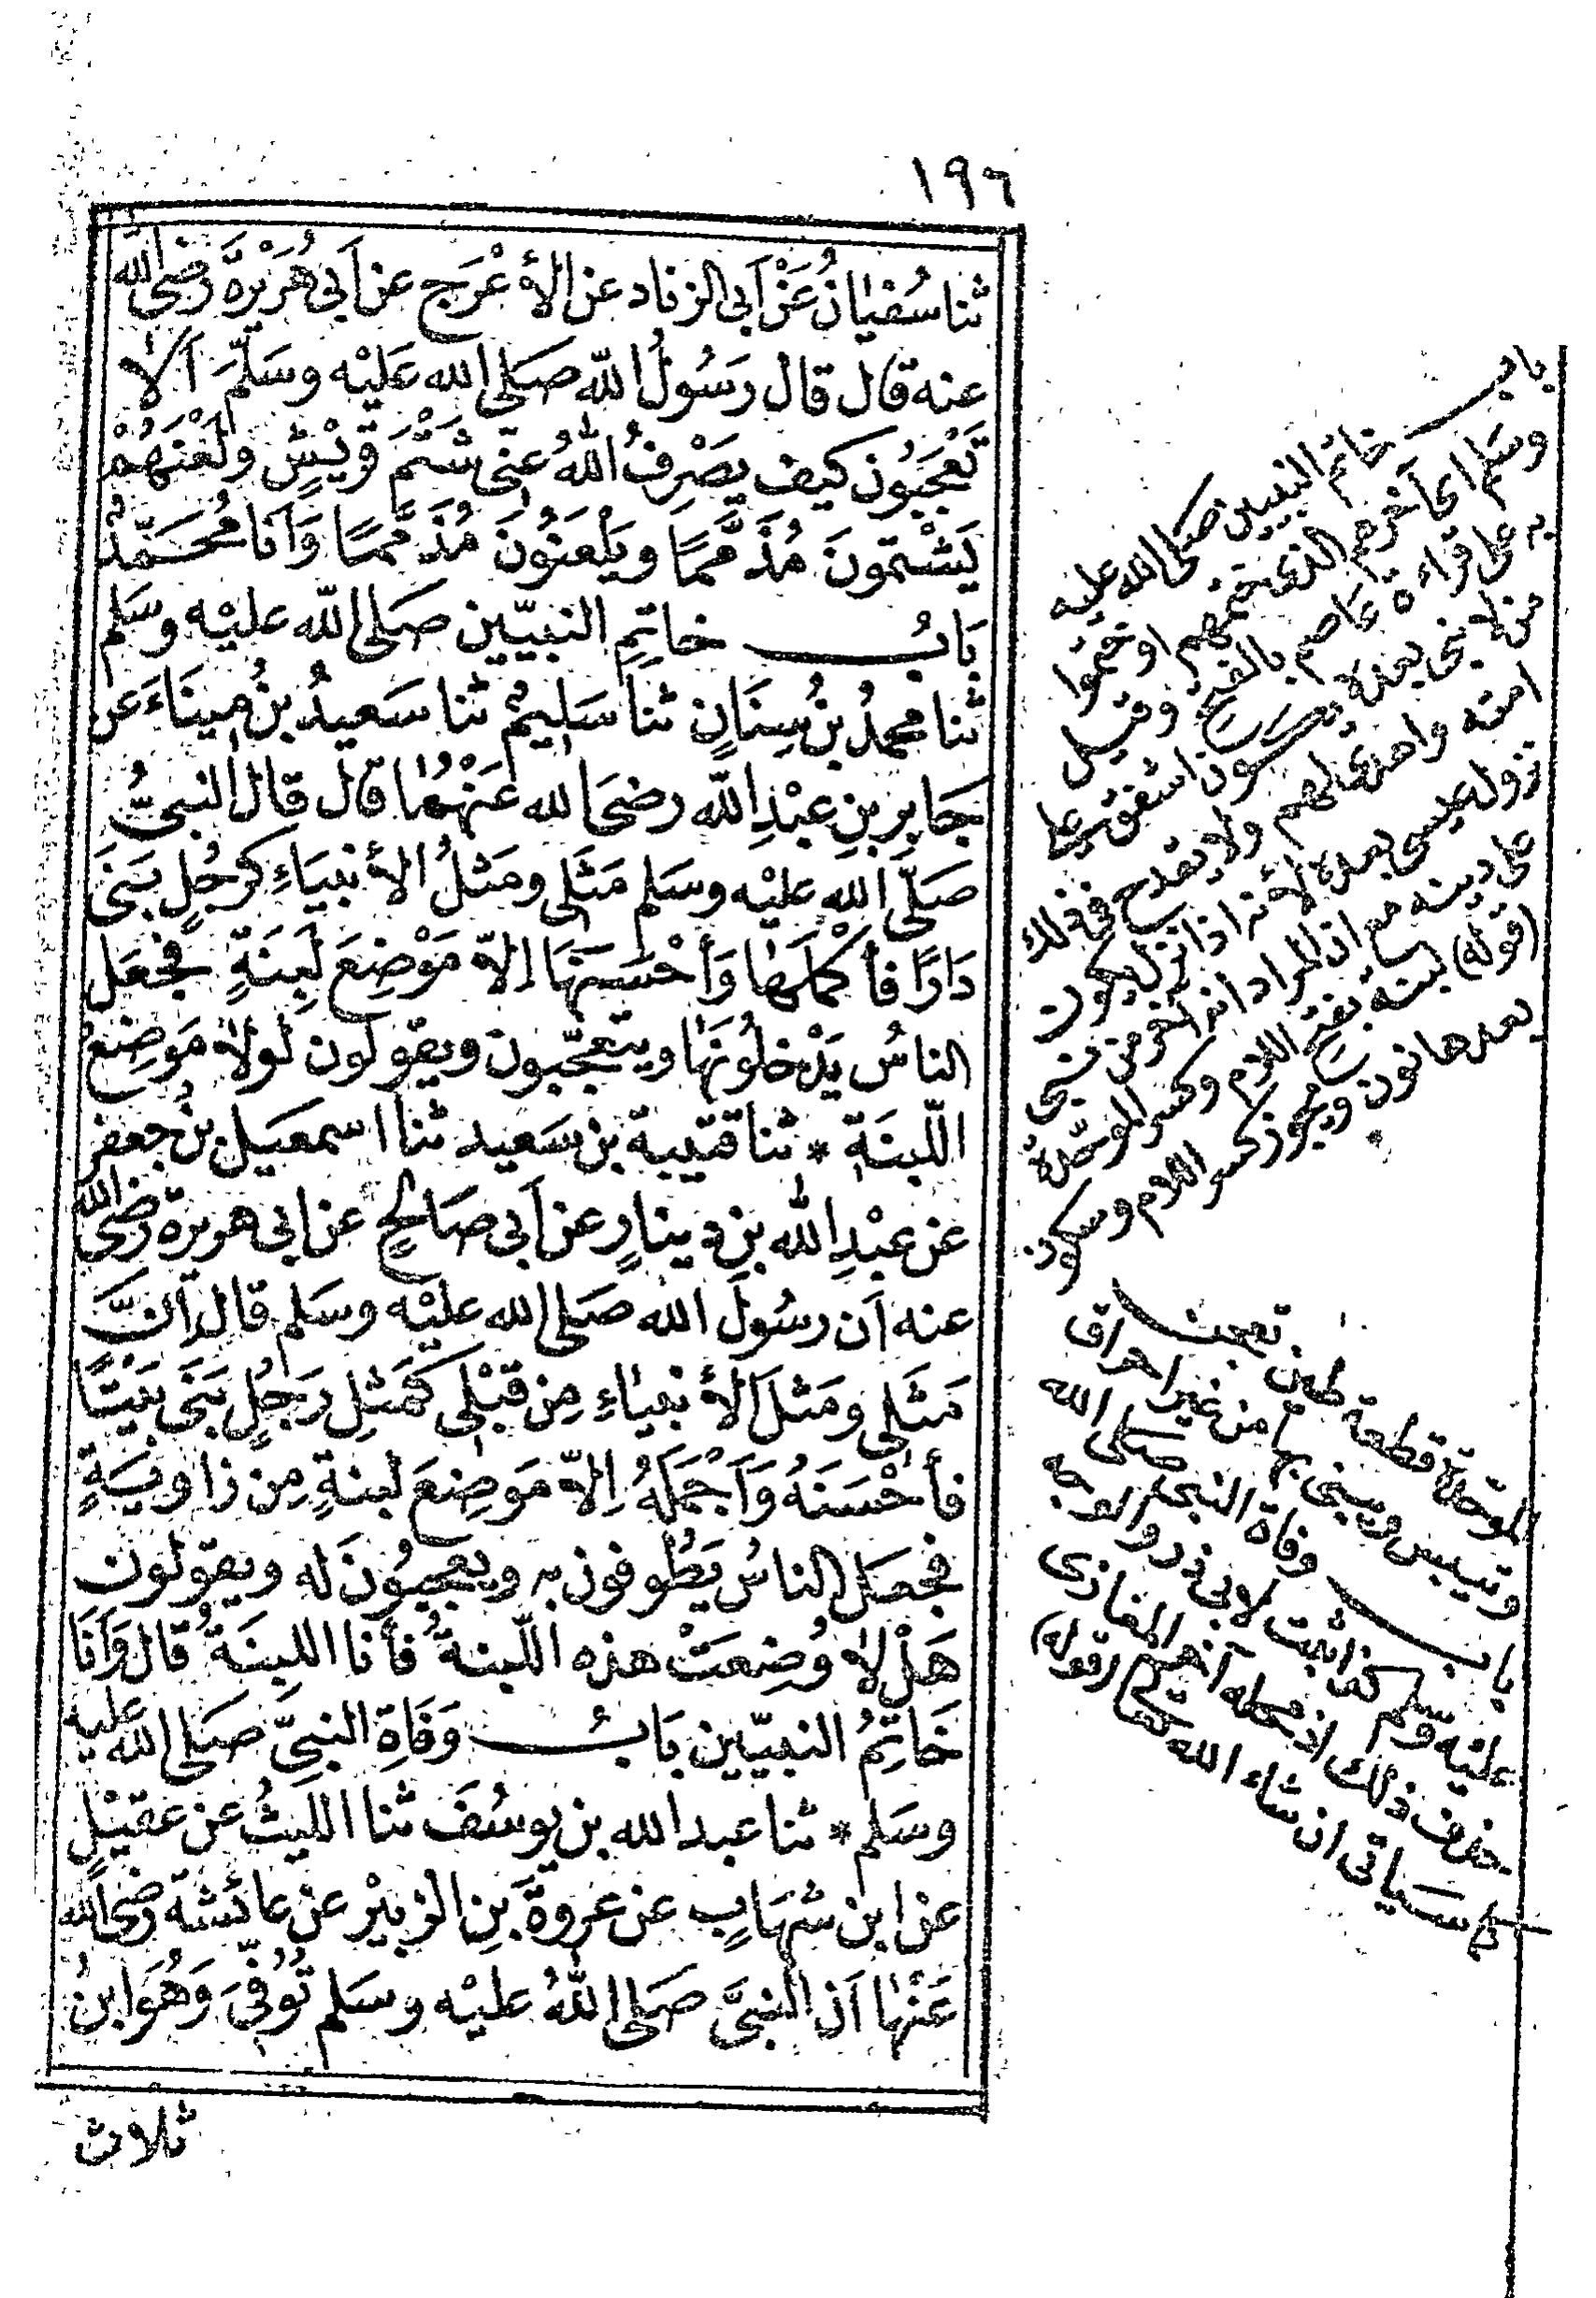 ١٩٦
ثنا سُفيانُ عَنْ أبى الزناد عن الأعْرَج عن أبى هُرَيْرَةَ رضى الله
عنه قال قال رَسُولُ الله صَلى الله عَلَيْه وسَلَّمَ اَلا
تَعْجَبُون كيف يَصْرِفُ اللهُ عنِّى شَتْمَ قُرَيْشٍ ولَعْنَهُمْ
يَشْتمونَ مُذَمَّمًا ويَلْعَنُونَ مُذَمَّمًا وَاَنا مُحَمَّدٌ
بَابُ خاتِمِ النبيّين صَلى الله عليْه وسَلم
ثنا محمدُ بنُ سِنَانٍ ثنا سَلِيمٌ ثنا سَعيدُ بنُ مِينَاءَ عن
جَابِر بنِ عبْدِ الله رضىَ الله عَنْهُمَا قال قال النبىُّ
صَلَّى الله عليْه وسَلم مَثَلِى ومَثلُ الأنبيَاءِ كرَجُلٍ بَنَى
دَارًا فأكْمَلَها وَأحْسَنَهَا اِلاّ مَوْضِعَ لَبِنَةٍ فجعَل
الناسُ يَدْخلُونَهَا ويتعجّبون ويقولون لولا مَوضِعُ
اللّبنَةِ * ثنا قتيبة بن سَعيد ثنا اسمعيل بنُ جعفر
عن عبْدِ الله بن دينارٍ عن اَبى صَالحٍ عن ابى هريرة رضى الله
عنه اَن رسُولَ الله صَلى الله عليْه وسَلم قال اِنَّ
مَثَلِى ومَثلَ الأنبياءِ مِن قبْلِى كمَثلِ رَجُلٍ بَنَى بَيْتًا
فأحْسَنَهُ وَاَجْمَلَهُ اِلاّ مَوضِعَ لبنةٍ مِن زاويَةٍ
فجعَل الناسُ يَطُوفون به ويعجبُونَ له ويقولون
هَلاّ وُضِعَتْ هذه اللّبنةُ فأنا اللبنَةُ قال وَاَنا
خَاتِمُ النبيّين بَابُ وَفَاةِ النبِىِّ صَلى الله عليه
وسَلم * ثنا عبد الله بن يوسُفَ ثنا الليثُ عن عقيْلٍ
عن ابن شهَابٍ عن عروةَ بنِ الزبيْر عن عائشة رضى الله
عَنْها اَن النبىَّ صَلى اللهُ عليْه وسَلم تُوُفِّىَ وَهُوَ ابنُ
ثلاث
باب خاتم النبيين صلى الله عليه
وسلم اى آخرهم الذى ختمهم او ختموا
به على قراءة عاصم بالفتح وقيل
من لا نبى بعده يكون اشفق على
امته واهدى لهم ولا يقدح فى ذلك
نزول عيسى بعده لأنه اذا نزل يكون
على دينه مع ان المراد انه آخر من نبئ
(قوله) لبنة بفتح اللام وكسر الموحدة
بعدها نون ويجوز كسر اللام وسكون
الموحدة قطعة طين تعجن
وتيبس ويبنى بها من غير احراق
باب وفاة النبى صلى الله
عليه وسلم كذا ثبت لابى ذر والوجه
حذف ذلك اذ محله آخر المغازى
كما سيأتى ان شاء الله (قوله)